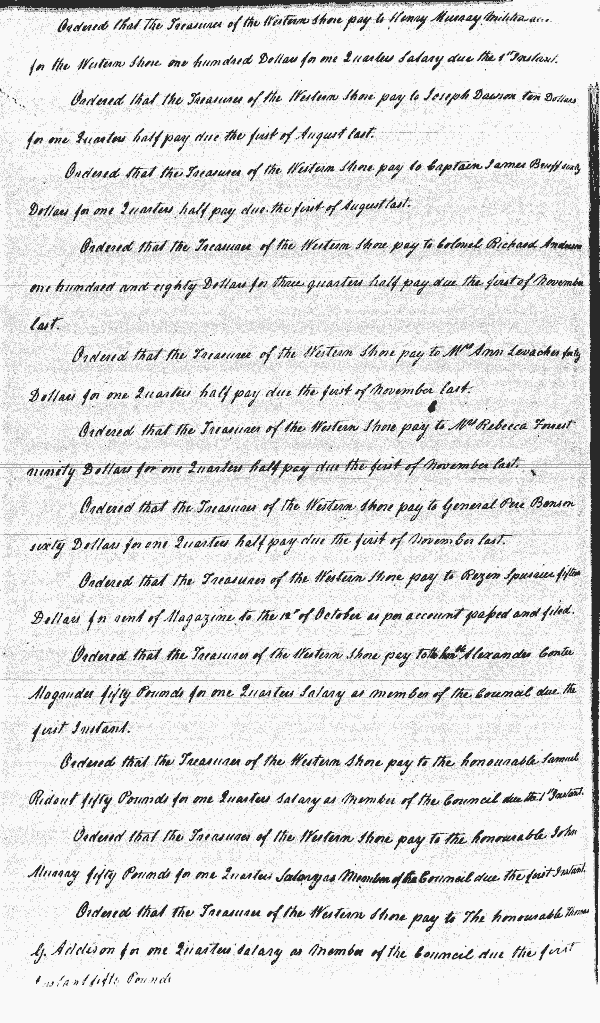 Ordered that the Treasurer of the Western Shore pay to Henry Murray
for the Western Shore one hundred Dollars for one Quarters Salary due the 1st Instant.
Ordered that the Treasurer of the Western Shore pay to Joseph Dawson ten Dollars
for one Quarters half pay due the first of August last.
Ordered that the Treasurer of the Western Shore pay to Captain James Bruff sixty
Dollars for one Quarters half pay due the first of August last.
Ordered that the Treasurer of the Western Shore pay to Colonel Richard Anderson
one hundred and eighty Dollars for three quarters half pay due the first of November
last.
Ordered that the Treasurer of the Western Shore pay to Mrs Ann Levacher forty
Dollars for one Quarters half pay due the first of November last.
Ordered that the Treasurer of the Western Shore pay to Mrs Rebecca Forrest
ninety Dollars for one Quarters half pay due the first of November last.
Ordered that the Treasurer of the Western Shore pay to General Pere Benson
sixty Dollars for one Quarters half pay due the first of November last.
Ordered that the Treasurer of the Western Shore pay to Rezin Spurrier fifteen
Dollars for rent of Magazine to the 12th of October as per account passed and filed.
Ordered that the Treasurer of the Western Shore pay to the honble Alexander Contee
Magruder fifty Pounds for one Quarters Salary as member of the Council due the
first Instant.
Ordered that the Treasurer of the Western Shore pay to the honourable Samuel
Ridout fifty Pounds for one Quarters salary as Member of the Council due the 1st Instant.
Ordered that the Treasurer of the Western Shore pay to the honourable John
Murray fifty Pounds for one Quarters Salary as Member of the Council due the first Instant.
Ordered that the Treasurer of the Western Shore pay to The honourable Thomas
G. Addison for one Quarters salary as Member of the Council due the first
Instant fifty Pounds